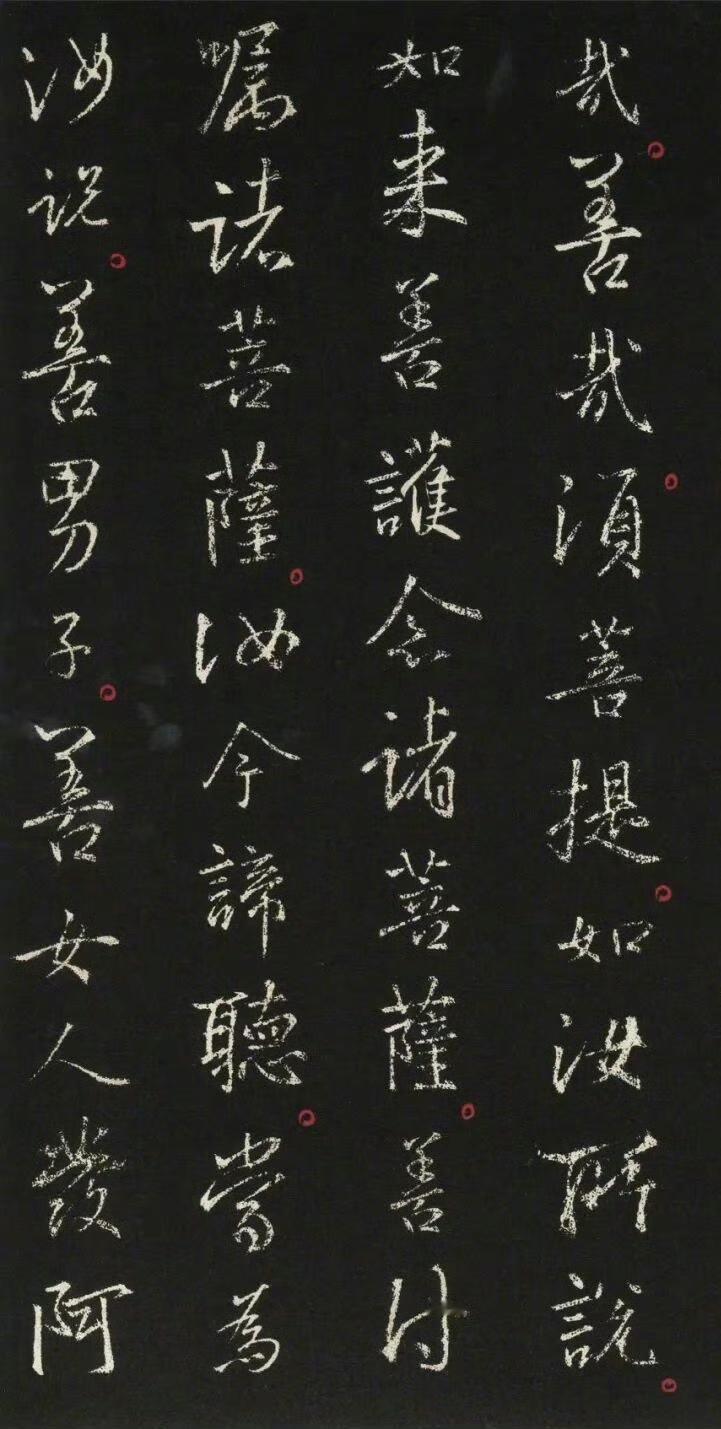 哉善哉須菩提如汝所說
如来善護念諸菩薩善付
嘱諸菩薩汝今諦聽當為
汝説善男子善女人發阿